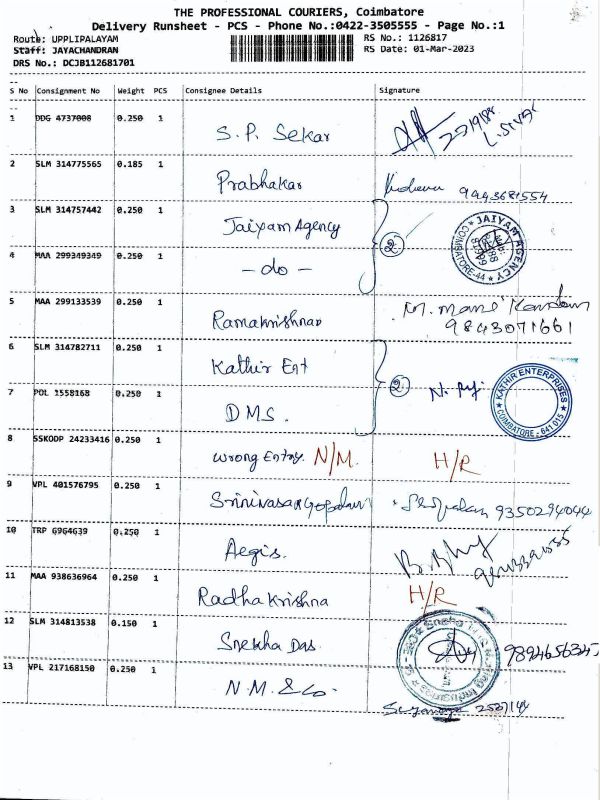 THE PROFESSIONAL COURIERS, Coimbatore
Delivery Runsheet - PCS - Phone No.:0422-3505555 - Page No.:1
Route: UPPLIPALAYAM RS No.: 1126817
Staff: JAYACHANDRAN RS Date: 01-Mar-2023
DRS No.: DCJB112681701
S No Consignment No Weight PCS Consignee Details Signature
1 DDG 4737008 0.250 1 S.P. Sekar
2 SLM 314775565 0.185 1 Prabhakar 9443681554
3 SLM 314757442 0.250 1 Jaiyam Agency
JAIYAM AGENCY
COIMBATORE-44
4 MAA 299349349 0.250 1 - do - 2
5 MAA 299133539 0.250 1 Ramakrishnan M. Mani Kandan
9843071661
6 SLM 314782711 0.250 1 Kathir Ent
KATHIR ENTERPRISES
COIMBATORE - 641 015
7 POL 1558168 0.250 1 DMS. 2
8 SSKODP 24233416 0.250 1 Wrong Entry. N/M. H/R
9 VPL 401576795 0.250 1 Srinivasan Gopalan 9350294044
10 TRP 6964639 0.250 1 Aegis.
11 MAA 938636964 0.250 1 Radha Krishna H/R
12 SLM 314813538 0.150 1 Sneha Das 9894656345
13 VPL 217168150 0.250 1 N.M. & Co.